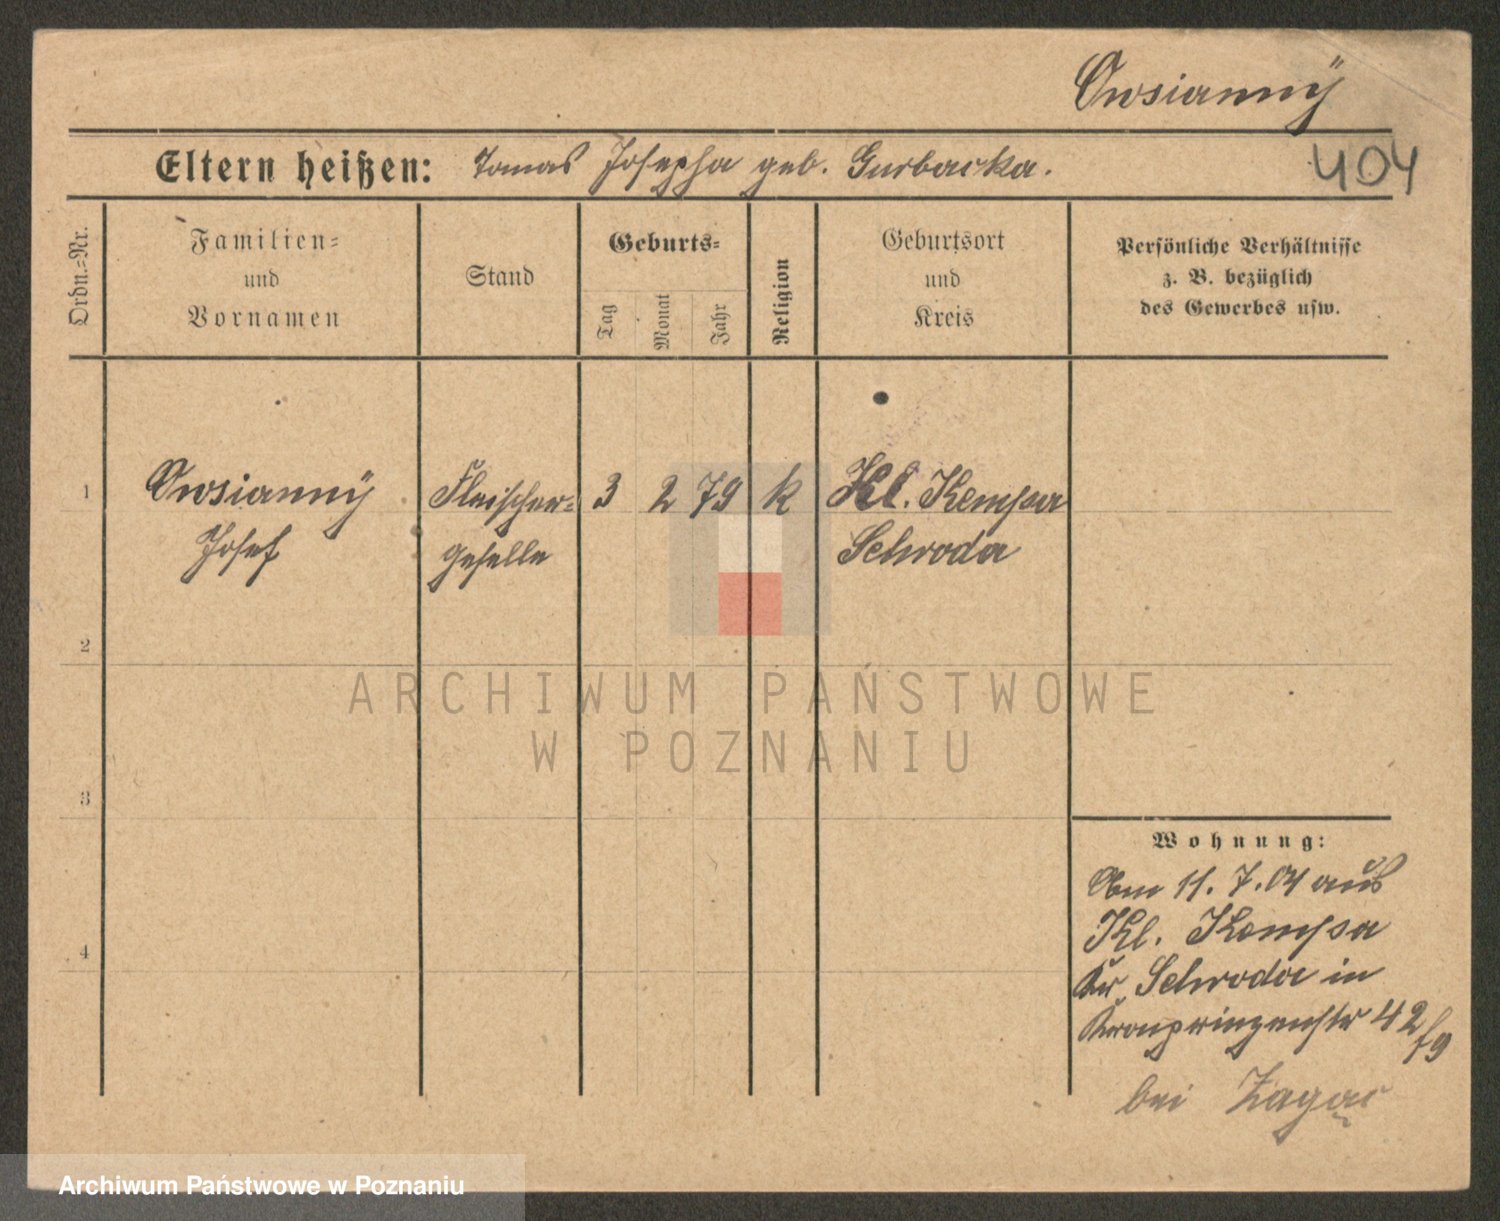 Owsianny
Eltern heißen: Tomas Josepha geb. Gurbacka.
404
Ordn.=Nr.
Familien=
und
Vornamen
Stand
Geburts=
Tag
Monat
Jahr
Religion
Geburtsort
und
Kreis
Persönliche Verhältnisse
z. B. bezüglich
des Gewerbes usw.
1 Owsianny Fleischer= 3 2 79 k Kl. Kempa
Josef geselle Schroda
2
ARCHIWUM PAŃSTWOWE
W POZNANIU
3
Wohnung:
Am 11. 7. 04 aus
Kl. Kempa
4
Kr. Schroda in
Kronprinzenstr 42
bei
Archiwum Państwowe w Poznaniu